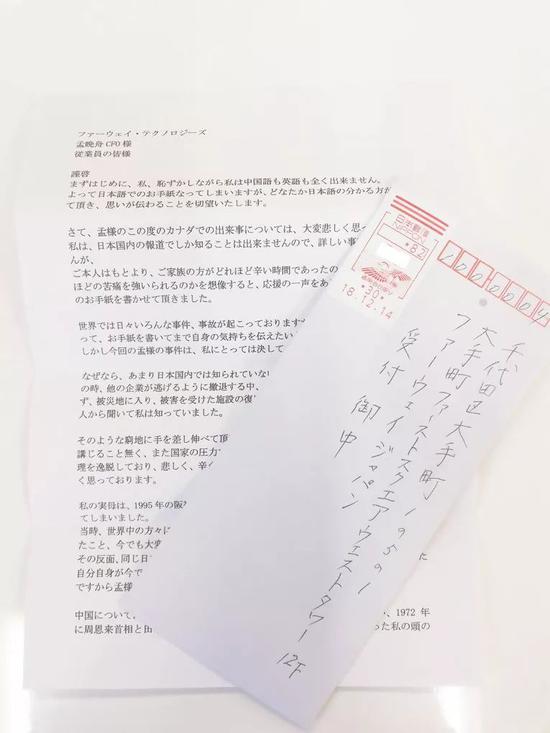 ファーウェイ・テクノロジーズ
孟晩舟 CFO 様
従業員の皆様
謹啓
まずはじめに、私、恥ずかしながら私は中国語も英語も全く出来ません。
よって日本語でのお手紙なってしまいますが、どなたか日本語の分かる方が
て頂き、思いが伝わることを切望いたします。
さて、孟様のこの度のカナダでの出来事については、大変悲しく思っ
私は、日本国内の報道でしか知ることは出来ませんので、詳しい事
んが、
ご本人はもとより、ご家族の方がどれほど辛い時間であったの
ほどの苦痛を強いられるのかを想像すると、応援の一声をあ
のお手紙を書かせて頂きました。
世界では日々いろんな事件、事故が起こっております
って、お手紙を書いてまで自身の気持ちを伝えたい
しかし今回の孟様の事件は、私にとっては決して
なぜなら、あまり日本国内では知られていな
の時、他の企業が逃げるように撤退する中、
ず、被災地に入り、被害を受けた施設の復
人から聞いて私は知っていました。
そのような窮地に手を差し伸べて頂
講じること無く、また国家の圧力
理を逸脱しており、悲しく、辛
く思っております。
私の実母は、1995 年の阪
てしまいました。
当時、世界中の方々に
たこと、今でも大変
その反面、同じ日
自分自身が今で
ですから孟様
中国について、
、1972 年
に周恩来首相と田
った私の頭の
日本郵便
NIPPON
*82
*30*
18.12.14
1000004
千代田区大手町
大手町ファーストスクエア ウエストタワー
12F
ファーウェイジャパン
受付 御中